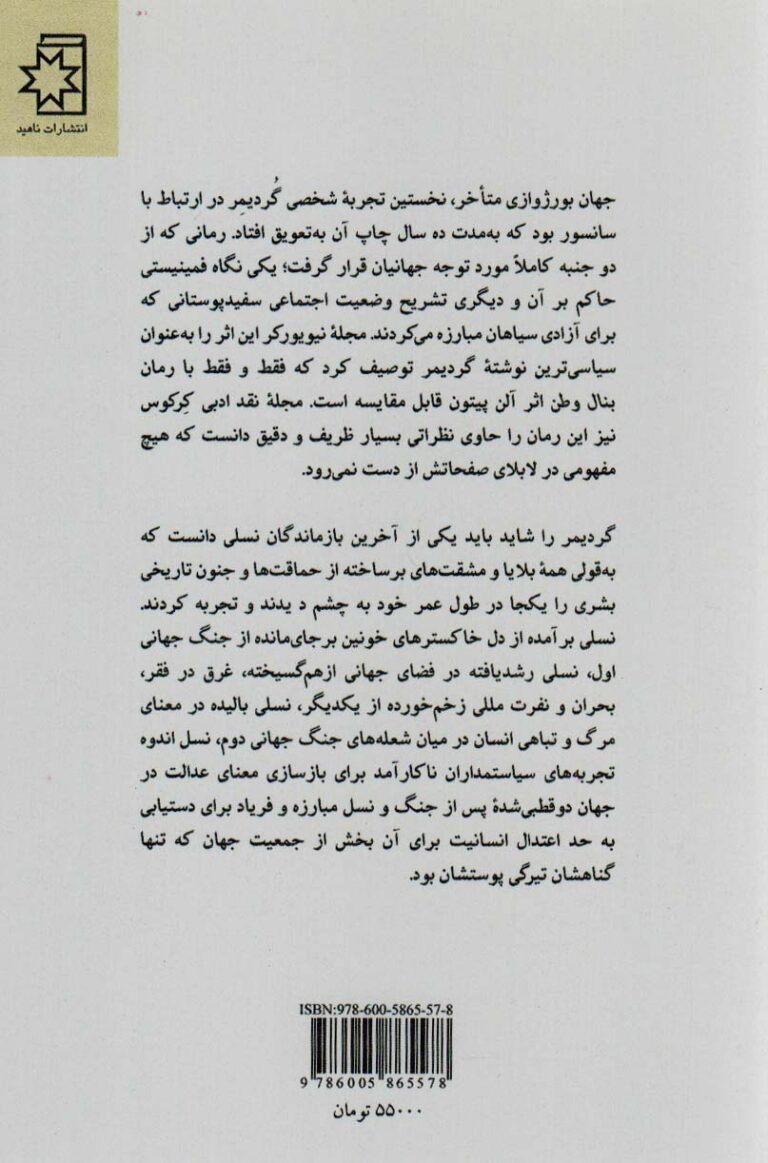 انتشارات ناهید
جهان بورژوازی متأخر، نخستین تجربهٔ شخصی گُردیمِر در ارتباط با
سانسور بود که به‌مدت ده سال چاپ آن به‌تعویق افتاد. رمانی که از
دو جنبه کاملاً مورد توجه جهانیان قرار گرفت؛ یکی نگاه فمینیستی
حاکم بر آن و دیگری تشریح وضعیت اجتماعی سفیدپوستانی که
برای آزادی سیاهان مبارزه می‌کردند. مجلهٔ نیویورکر این اثر را به‌عنوان
سیاسی‌ترین نوشتهٔ گردیمر توصیف کرد که فقط و فقط با رمان
بنال وطن اثر آلن پیتون قابل مقایسه است. مجلهٔ نقد ادبی کِرکوس
نیز این رمان را حاوی نظراتی بسیار ظریف و دقیق دانست که هیچ
مفهومی در لابلای صفحاتش از دست نمی‌رود.
گردیمر را شاید باید یکی از آخرین بازماندگان نسلی دانست که
به‌قولی همهٔ بلایا و مشقت‌های برساخته از حماقت‌ها و جنون تاریخی
بشری را یکجا در طول عمر خود به چشم د یدند و تجربه کردند.
نسلی بر آمده از دل خاکسترهای خونین برجای‌مانده از جنگ جهانی
اول، نسلی رشدیافته در فضای جهانی ازهم‌گسیخته، غرق در فقر،
بحران و نفرت مللی زخم‌خورده از یکدیگر، نسلی بالیده در معنای
مرگ و تباهی انسان در میان شعله‌های جنگ جهانی دوم، نسل اندوه
تجربه‌های سیاستمداران ناکارآمد برای بازسازی معنای عدالت در
جهان دوقطبی‌شدهٔ پس از جنگ و نسل مبارزه و فریاد برای دستیابی
به حد اعتدال انسانیت برای آن بخش از جمعیت جهان که تنها
گناهشان تیرگی پوستشان بود.
ISBN:978-600-5865-57-8
9 786005 865578
۵۵۰۰۰ تومان